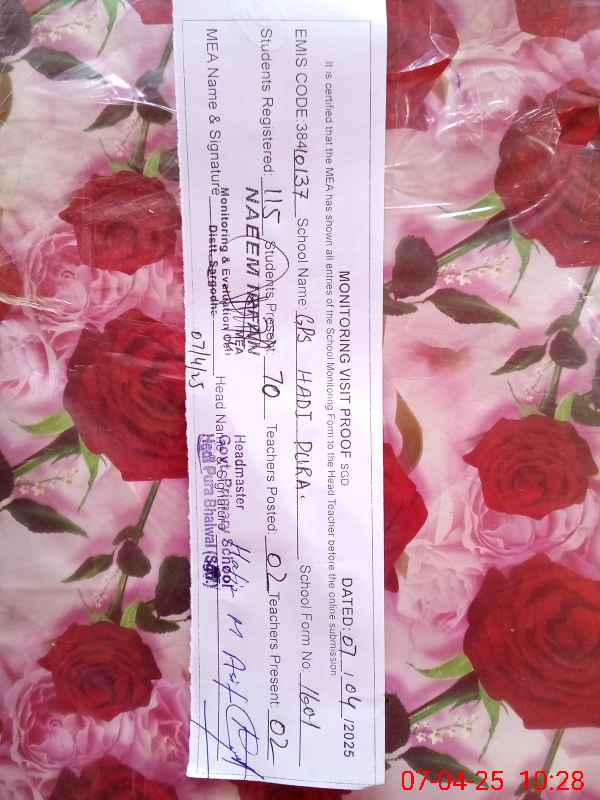 MONITORING VISIT PROOF SGD DATED: 07/04/2025
It is certified that the MEA has shown all entries of the School Monitoring Form to the Head Teacher before the online submission
EMIS CODE: 38410137 School Name GPS HADI PURA. School Form No: 1601
Students Registered: 115 Students Present 70 Teachers Posted: 02 Teachers Present: 02
NAEEM
MEA
MEA Name & Signature Head Name & Signature
Monitoring & Evaluation
Distt Sargodha
07/4/25
Headmaster
Govt. Primary School
Hadi Pura Bhalwal (Sgd.)
M Asif
07-04-25 10:28